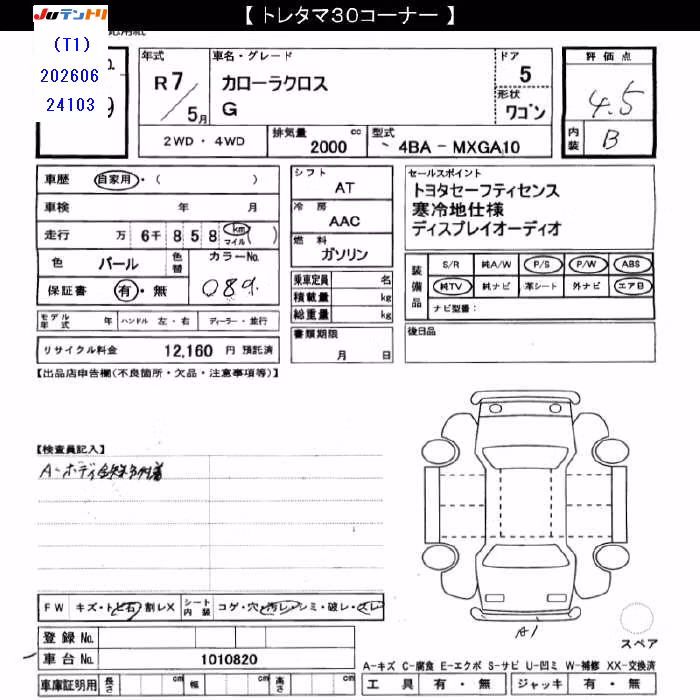 【 トレタマ30コーナー 】
Juテントリ
(T1)
202606
24103
年式
R7/5月
車名・グレード
カローラクロス
G
ドア
5
形状
ワゴン
評価点
4.5
内装
B
2WD ・ 4WD
排気量 2000 cc
型式 4BA - MXGA10
車歴 自家用・( )
車検 年 月
走行 万 6千 8 5 8 km マイル ( )
色 パール 色替 カラーNo. 089
保証書 有・無
モデル年式 年 ハンドル 左・右 ディーラー・並行
リサイクル料金 12,160 円 預託済
シフト
AT
冷房
AAC
燃料
ガソリン
乗車定員 名
積載量 kg
総重量 kg
書類期限
月 日
セールスポイント
トヨタセーフティセンス
寒冷地仕様
ディスプレイオーディオ
装備品
S/R 純A/W P/S P/W ABS
純TV 純ナビ 革シート 外ナビ エアB
ナビ型番:
後日品
【出品店申告欄(不良箇所・欠品・注意事項等)】
【検査員記入】
FW キズ・トビ石・割レX シート内装 コゲ・穴・汚レ・シミ・破レ・スレ
登録 No.
車台 No. 1010820
車庫証明用 長さ cm 幅 cm 高さ cm
A1
スペア
A-キズ C-腐食 E-エクボ S-サビ U-凹ミ W-補修 XX-交換済
工具 有・無 ジャッキ 有・無